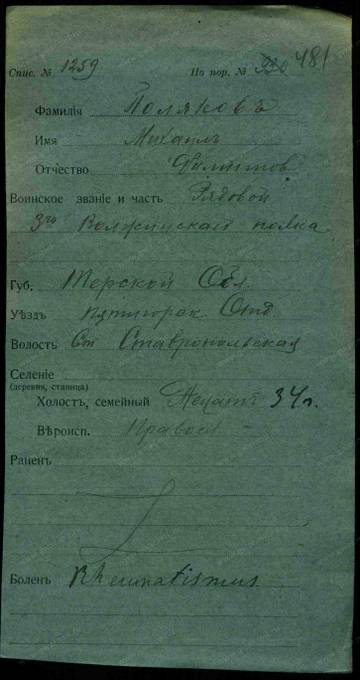 Спис. № 1259 По пор. № 930 481
Фамилія Поляковъ
Имя Михаилъ
Отчество Филиппов
Воинское званіе и часть Рядовой
3го Волжскаго полка
Губ. Терской Обл
Уѣздъ Пятигорск Отд.
Волость Ст Ставропольская
Селеніе
(деревня, станица)
Холостъ, семейный Женатъ 34 г.
Вѣроисп. Правосл -
Раненъ
Боленъ Rheumatismus